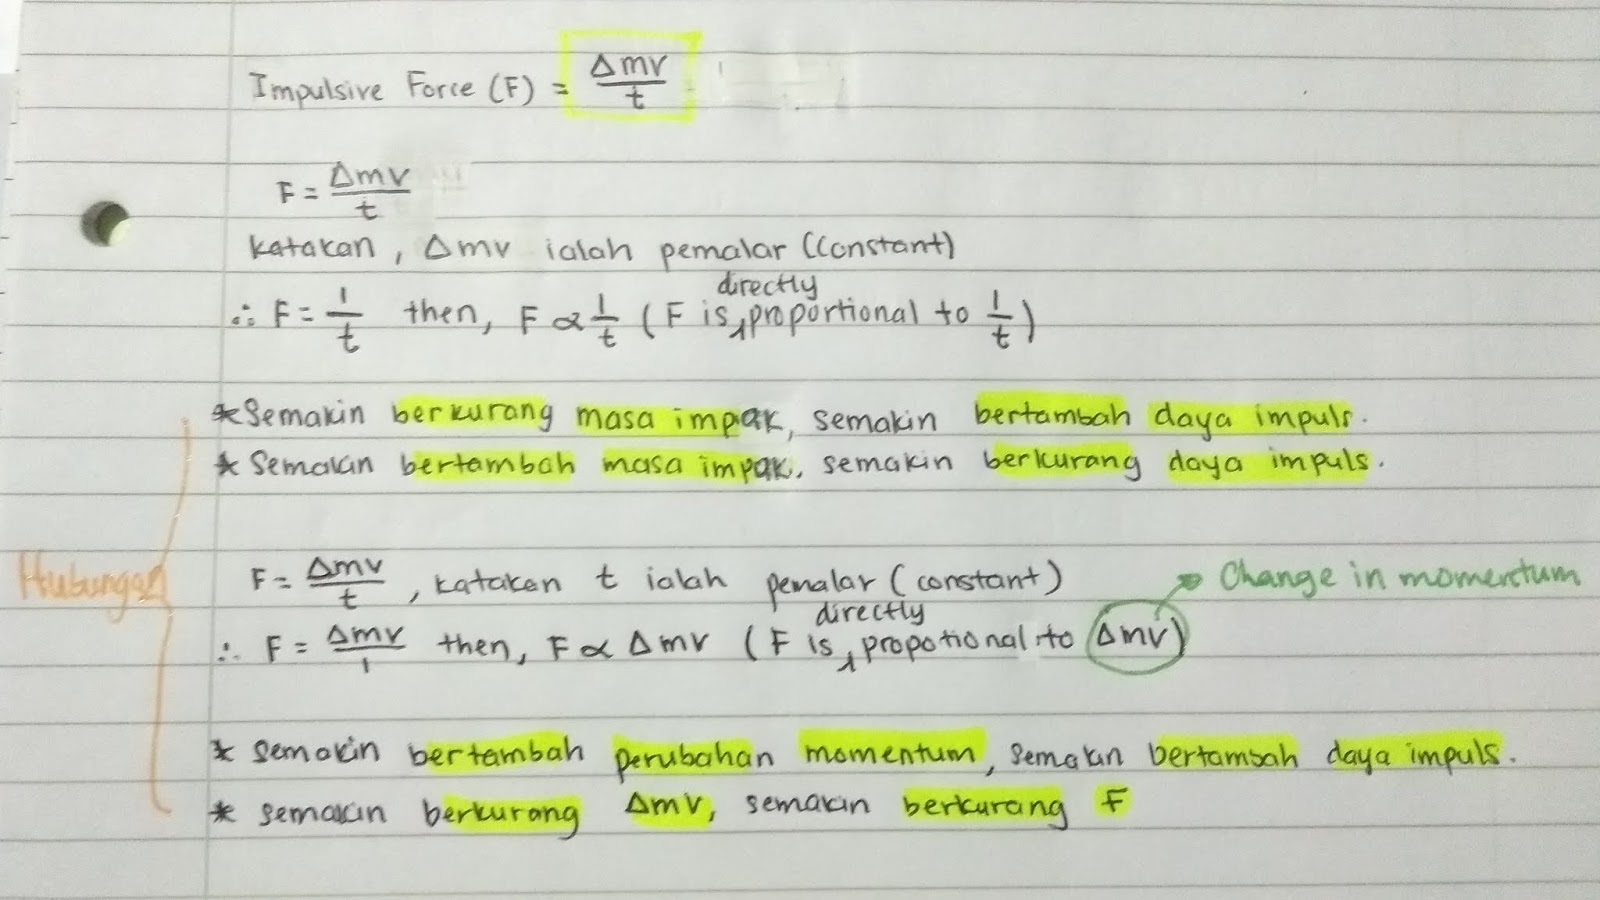 Impulsive Force (F) = Δmv/t
F = Δmv/t
katakan, Δmv ialah pemalar (constant)
directly
∴ F = 1/t then, F ∝ 1/t (F is proportional to 1/t)
* Semakin berkurang masa impak, semakin bertambah daya impuls.
* Semakin bertambah masa impak, semakin berkurang daya impuls.
Hubungan
F = Δmv/t, katakan t ialah pemalar (constant)
Change in momentum
directly
∴ F = Δmv/1 then, F ∝ Δmv (F is propotional to Δmv)
* Semakin bertambah perubahan momentum, semakin bertambah daya impuls.
* semakin berkurang Δmv, semakin berkurang F